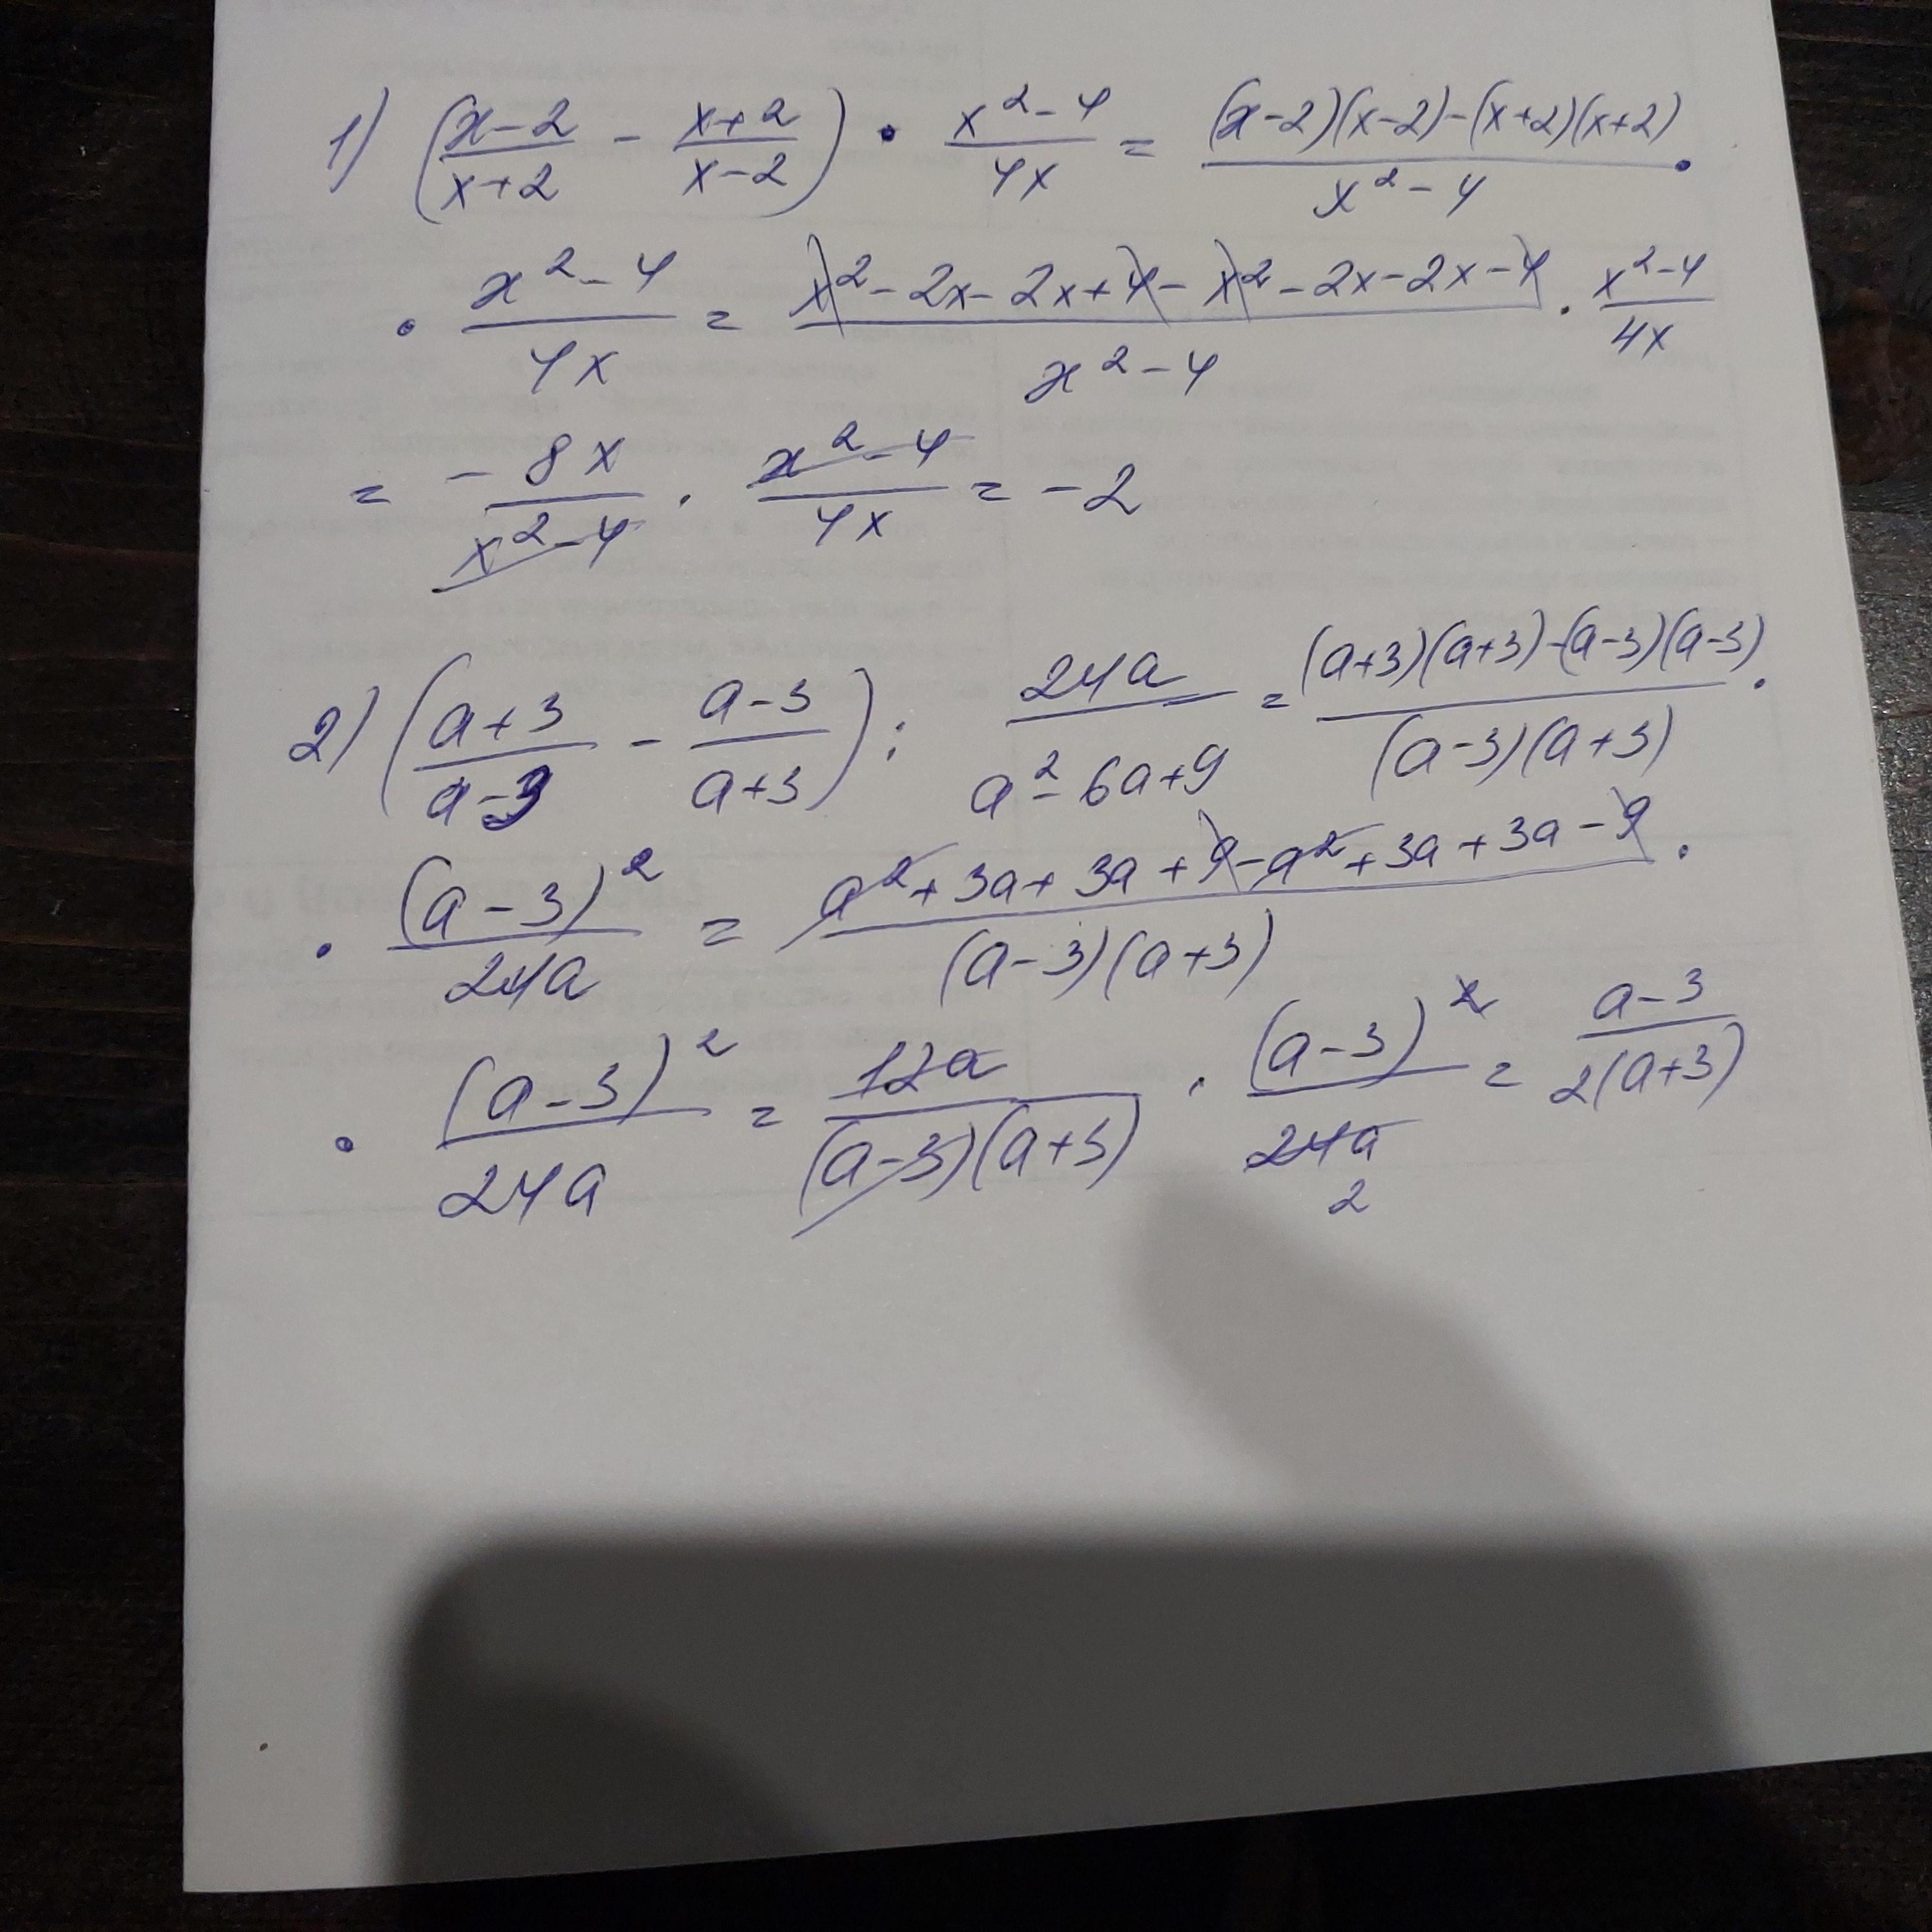 1) ((x-2)/(x+2) - (x+2)/(x-2)) · (x²-4)/(4x) = ((x-2)(x-2)-(x+2)(x+2))/(x²-4) ·
· (x²-4)/(4x) = (x²-2x-2x+4-x²-2x-2x-4)/(x²-4) · (x²-4)/(4x)
= (-8x)/(x²-4) · (x²-4)/(4x) = -2
2) ((a+3)/(a-3) - (a-3)/(a+3)) : (24a)/(a²-6a+9) = ((a+3)(a+3)-(a-3)(a-3))/((a-3)(a+3)) ·
· (a-3)²/(24a) = (a²+3a+3a+9-a²+3a+3a-9)/((a-3)(a+3)) ·
· (a-3)²/(24a) = (12a)/((a-3)(a+3)) · (a-3)²/(24a) = (a-3)/(2(a+3))
2